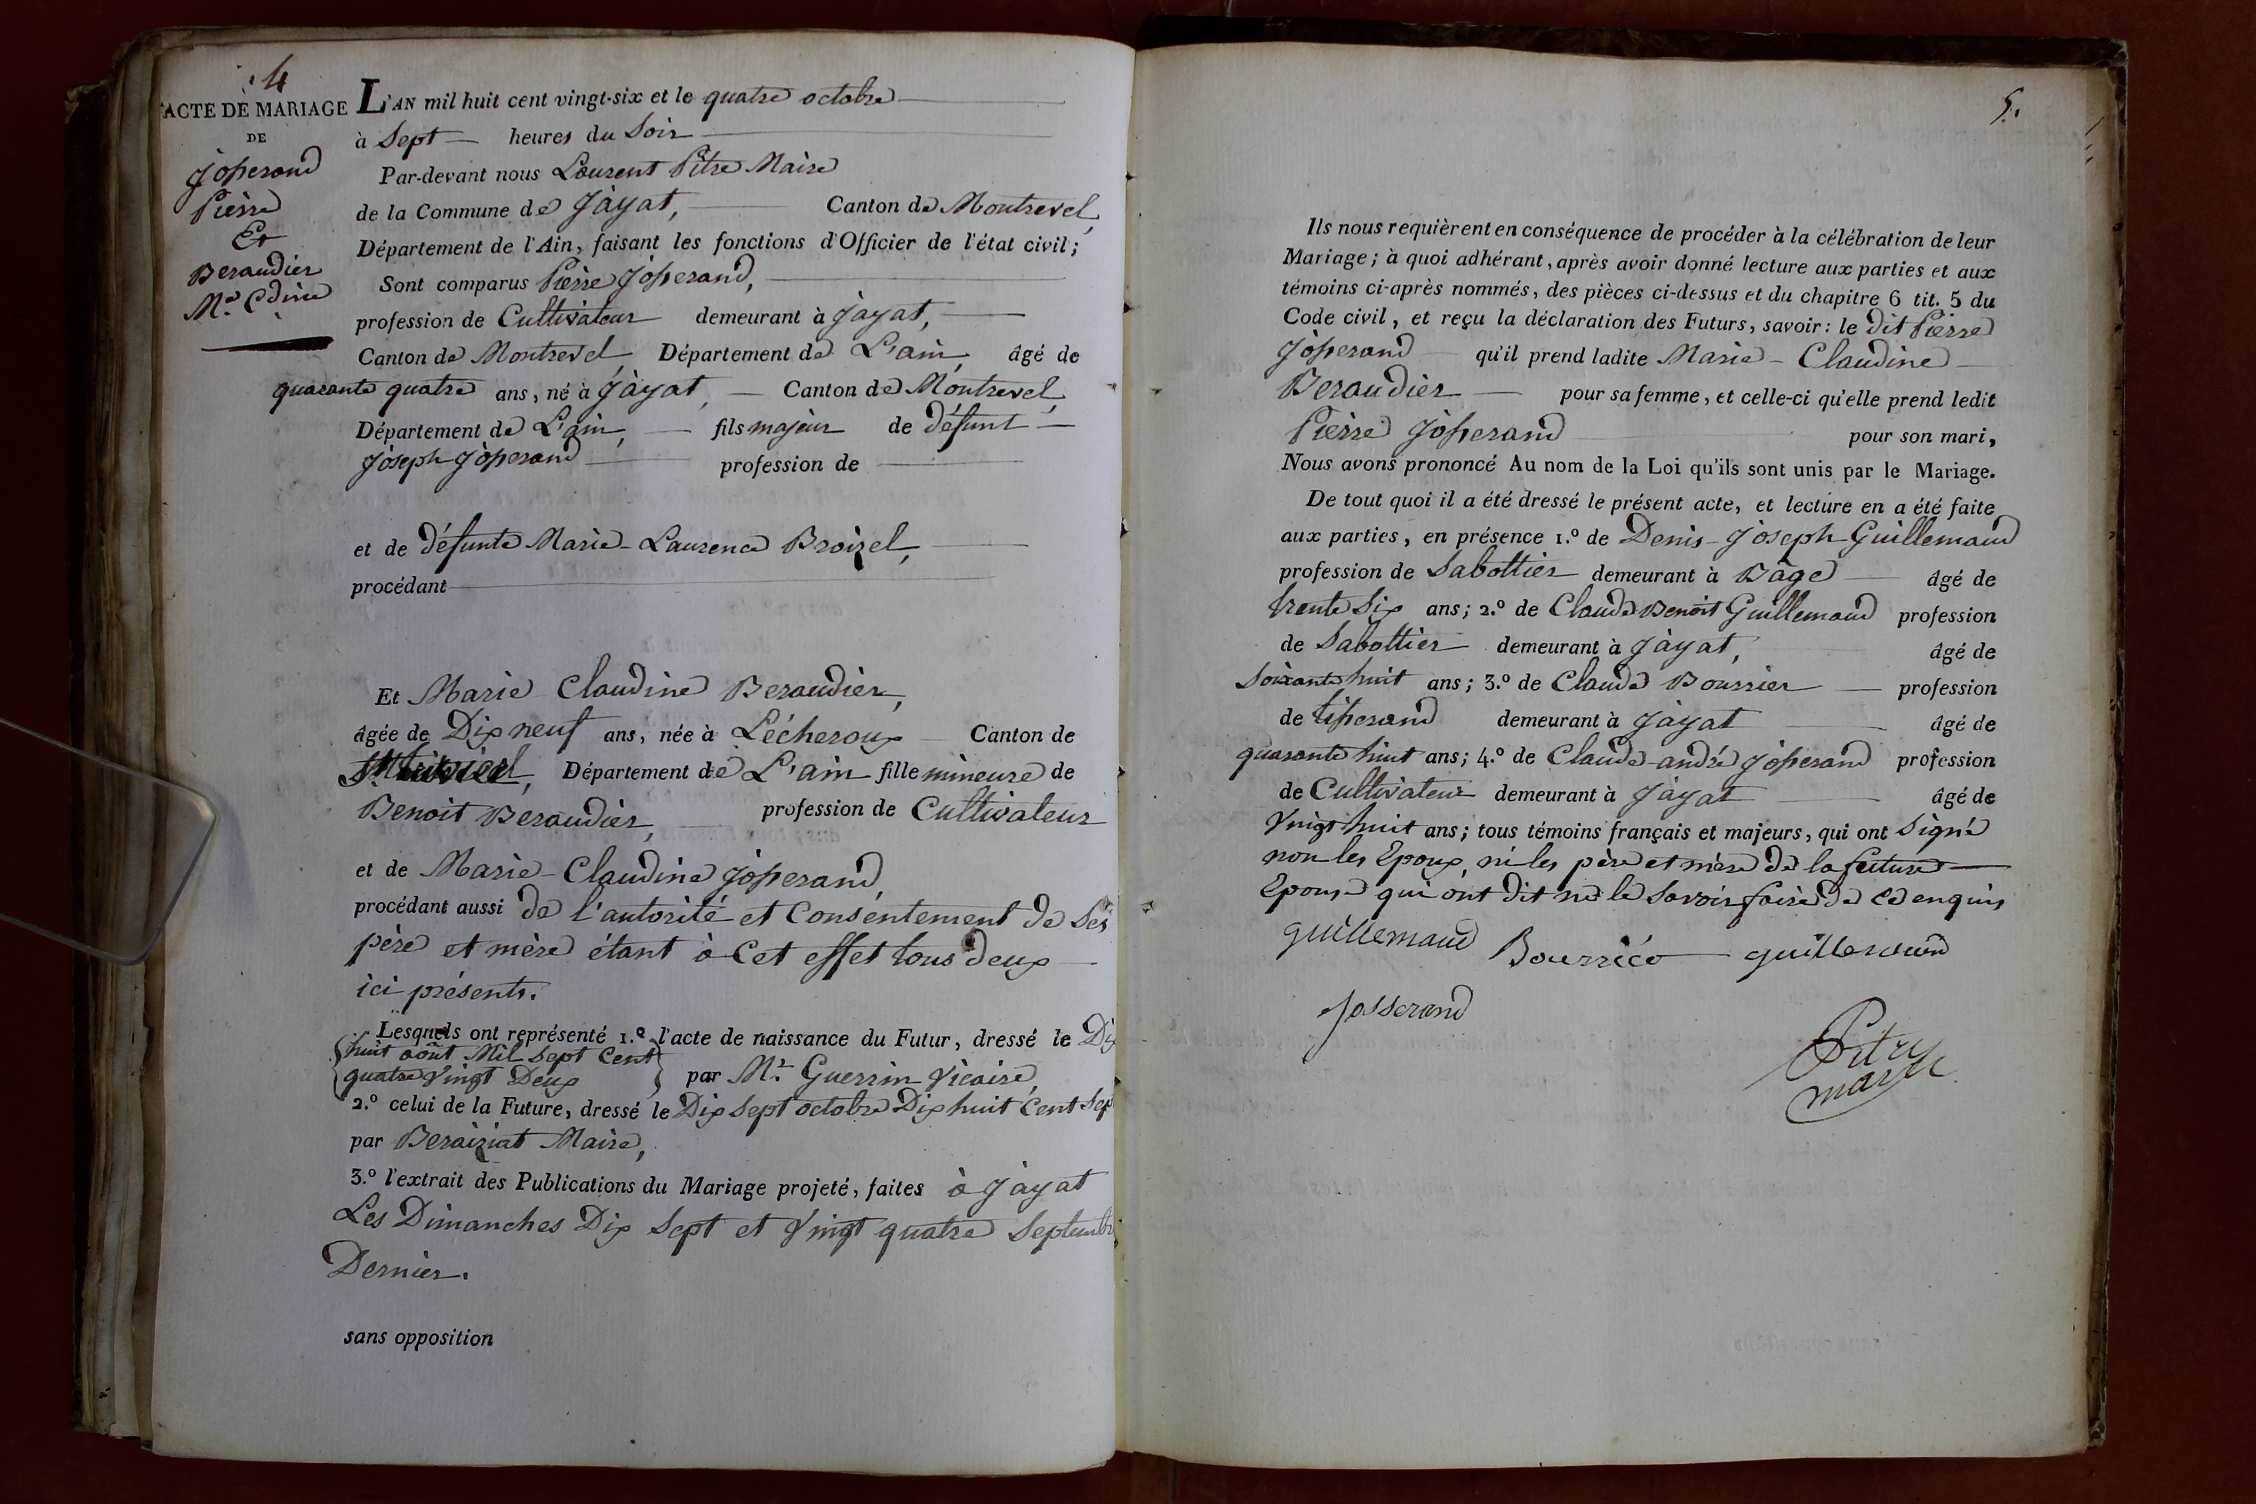 4
ACTE DE MARIAGE
DE
Josserand
Pierre
Et
Beraudier
M.e Cdine
L'AN mil huit cent vingt-six et le quatre octobre
à Sept heures du Soir
Par-devant nous Laurent Pitre Maire
de la Commune de Jàyat, Canton de Montrevel,
Département de l'Ain, faisant les fonctions d'Officier de l'état civil;
Sont comparus Pièrre Josserand,
profession de Cultivateur demeurant à Jàyat,
Canton de Montrevel, Département de L'ain, âgé de
quarante quatre ans, né à Jàyat, Canton de Montrevel,
Département de L'ain, fils majeur de défunt
Joseph Josserand profession de
et de défunte Marie-Laurence Broizel,
procédant
Et Marie Claudine Beraudier,
âgée de Dix neuf ans, née à Lécheroux Canton de
St. trivier, Département de L'ain fille mineure de
Benoit Beraudier, profession de Cultivateur
et de Marie-Claudine Josserand,
procédant aussi de l'autorité et Consentement de Ses
père et mère étant à Cet effet tous deux
ici présents.
Lesquels ont représenté 1.º l'acte de naissance du Futur, dressé le Dix
huit août Mil Sept Cent
quatre Vingt Deux par Mr. Guerrin Vicaire,
2.º celui de la Future, dressé le Dix Sept octobre Dix huit Cent Sept
par Beraiziat Maire,
3.º l'extrait des Publications du Mariage projeté, faites à Jàyat
Les Dimanches Dix Sept et Vingt quatre Septembre
Dernier.
sans opposition
5.
Ils nous requièrent en conséquence de procéder à la célébration de leur
Mariage; à quoi adhérant, après avoir donné lecture aux parties et aux
témoins ci-après nommés, des pièces ci-dessus et du chapitre 6 tit. 5 du
Code civil, et reçu la déclaration des Futurs, savoir: le dit Pièrre
Josserand qu'il prend ladite Marie-Claudine
Beraudier pour sa femme, et celle-ci qu'elle prend ledit
Pièrre Josserand pour son mari,
Nous avons prononcé Au nom de la Loi qu'ils sont unis par le Mariage.
De tout quoi il a été dressé le présent acte, et lecture en a été faite
aux parties, en présence 1.º de Denis-Joseph Guillemaud
profession de Sabottier demeurant à Bâgé âgé de
trente Six ans; 2.º de Claude Benoit Guillemaud profession
de Sabottier demeurant à Jàyat, âgé de
Soixante huit ans; 3.º de Claude Bourrier profession
de tisserand demeurant à Jàyat âgé de
quarante huit ans; 4.º de Claude-andré Josserand profession
de Cultivateur demeurant à Jàyat âgé de
Vingt huit ans; tous témoins français et majeurs, qui ont Signé
non les Epoux, ni les père et mère de la future
Epouse qui ont dit ne le Savoir faire de ce enquis
guillemaud Bourrico guillemaud
Josserand
Pitre
maire